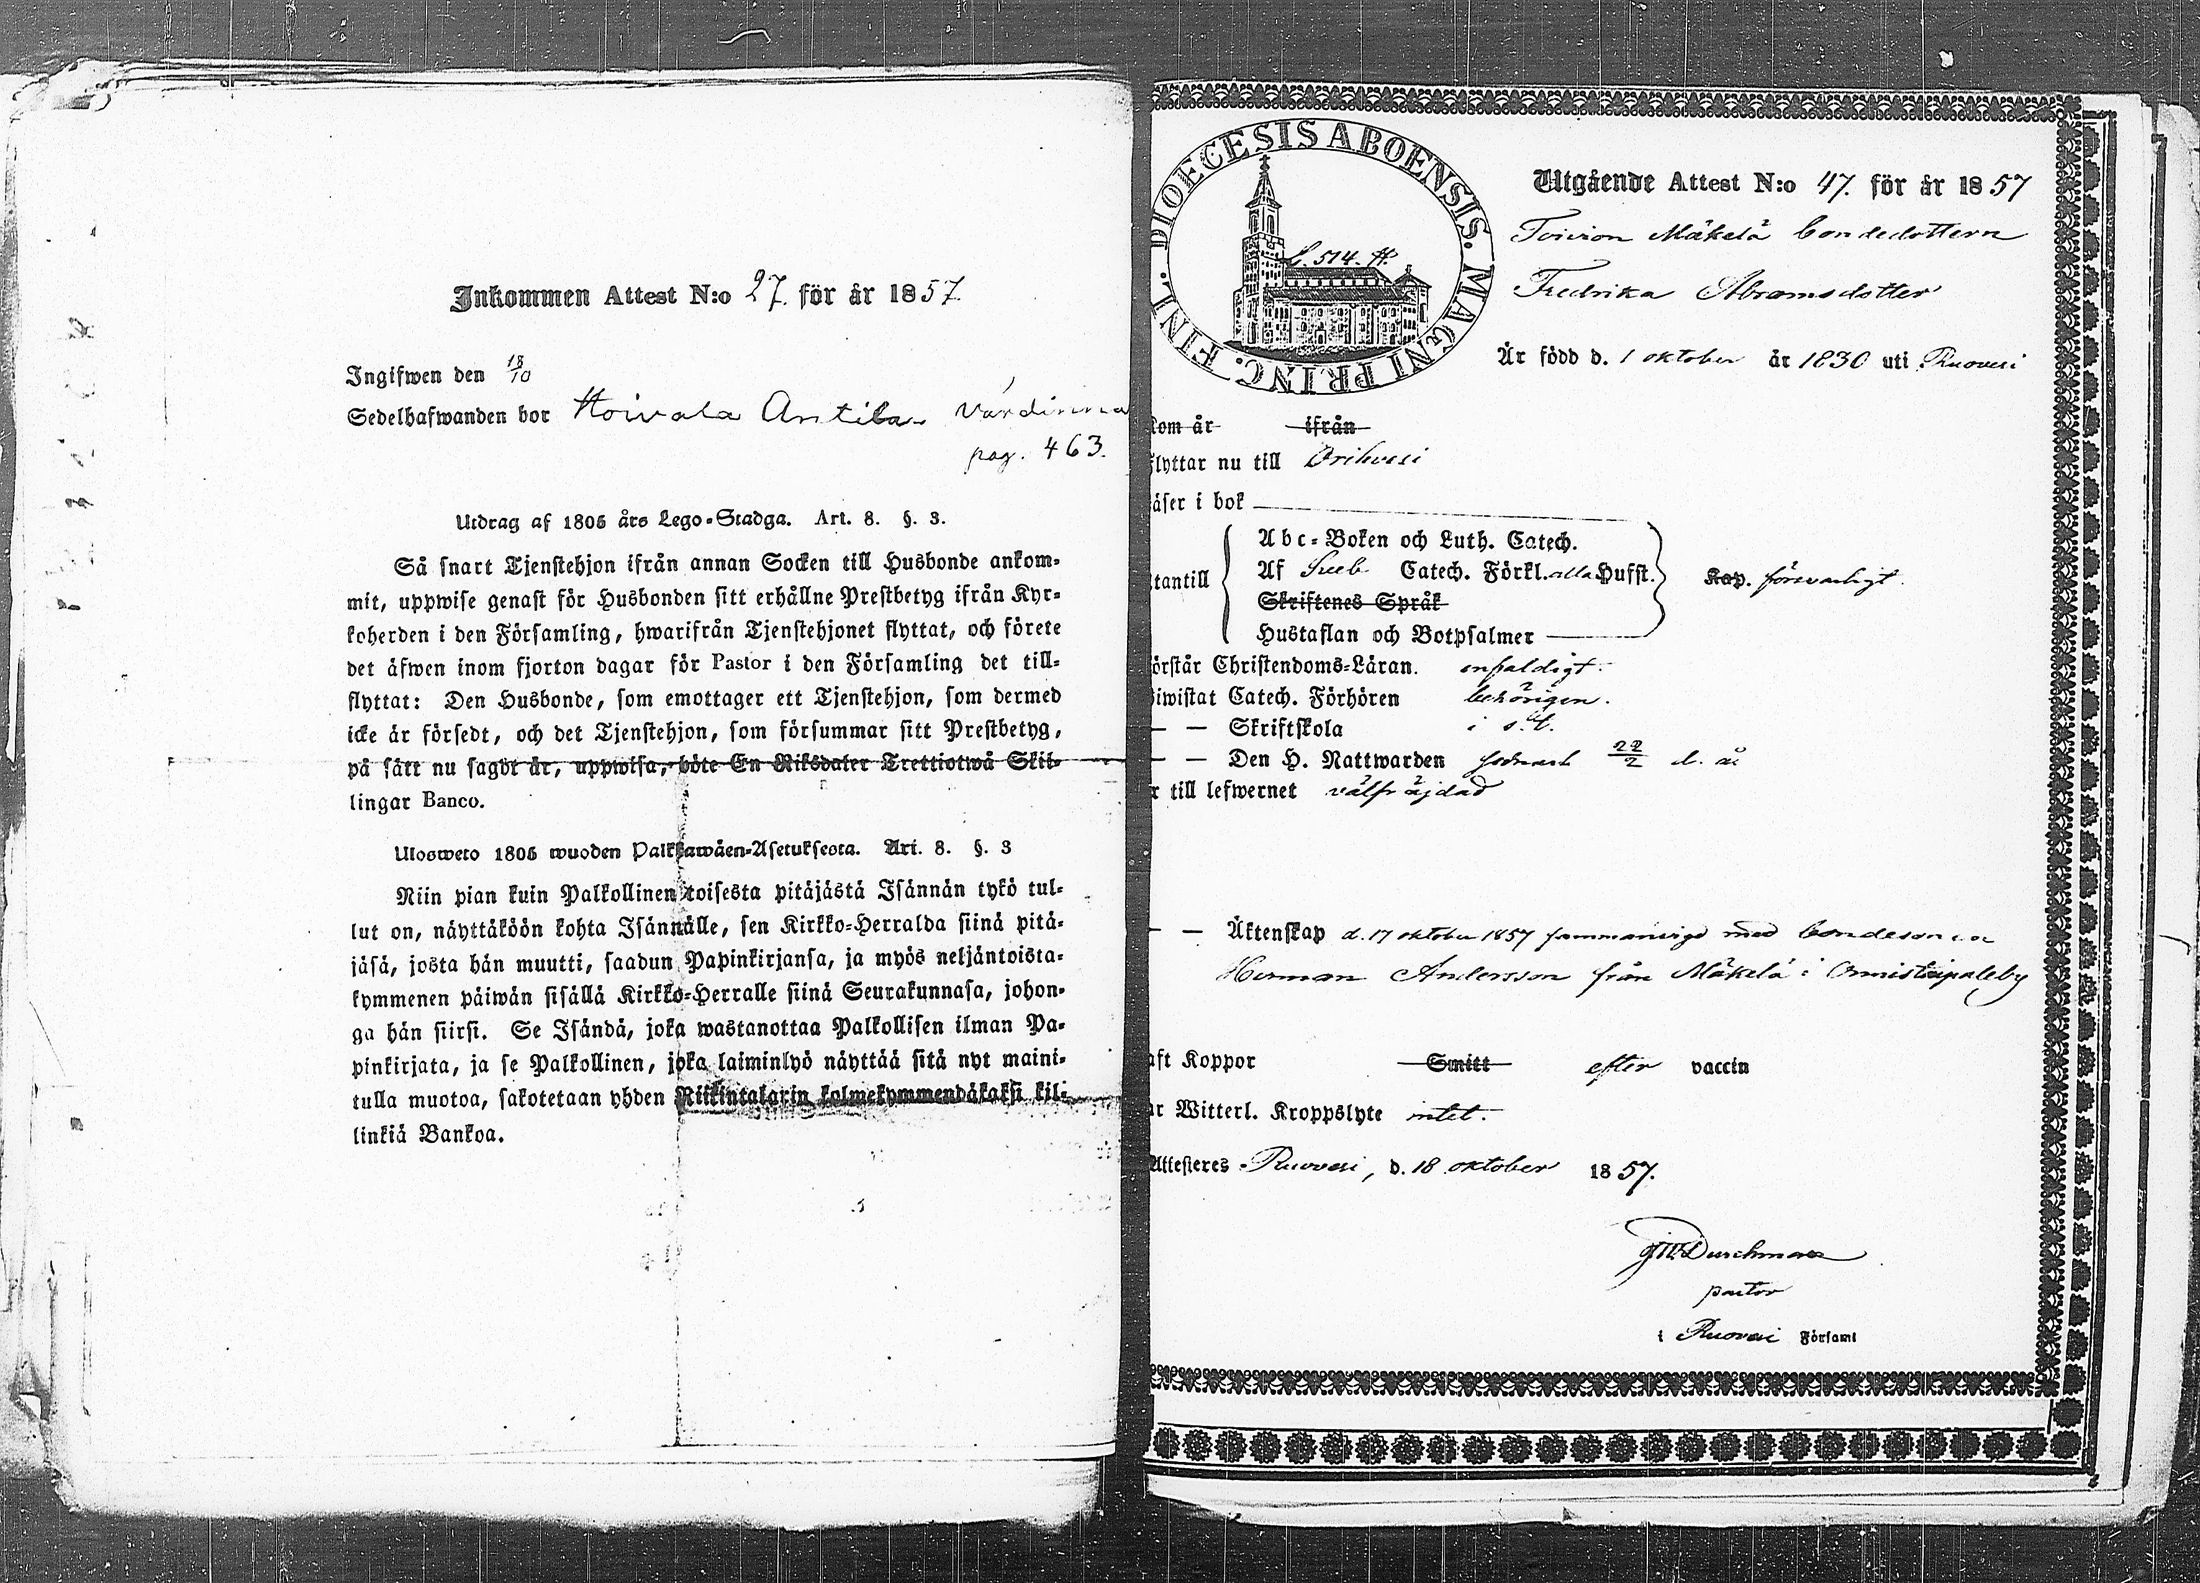 Inkommen Attest N:o 27. för år 1857.
Ingifwen den 18/10
Sedelhafwanden bor Hoivala Antila Värdinna
pag. 463.
Utdrag af 1805 års Lego-Stadga. Art. 8. §. 3.
Så snart Tjenstehjon ifrån annan Socken till Husbonde ankom-
mit, uppwise genast för Husbonden sitt erhållne Prestbetyg ifrån Kyr-
koherden i den Församling, hwarifrån Tjenstehjonet flyttat, och förete
det äfwen inom fjorton dagar för Pastor i den Församling det till-
flyttat: Den Husbonde, som emottager ett Tjenstehjon, som dermed
icke är försedt, och det Tjenstehjon, som försummar sitt Prestbetyg,
på sätt nu sagdt är, uppwisa, böte En Riksdaler Trettiotwå Skil-
lingar Banco.
Ulosweto 1805 wuoden Palkkawäen-Asetuksesta. Art. 8. §. 3
Niin pian kuin Palkollinen toisesta pitäjästä Isännän tykö tul-
lut on, näyttäköön kohta Isännälle, sen Kirkko-Herralda siinä pitä-
jäsä, josta hän muutti, saadun Papinkirjansa, ja myös neljäntoista-
kymmenen päiwän sisällä Kirkko-Herralle siinä Seurakunnasa, johon-
ga hän siirsi. Se Isändä, joka wastanottaa Palkollisen ilman Pa-
pinkirjata, ja se Palkollinen, joka laiminlyö näyttää sitä nyt maini-
tulla muotoa, sakotetaan yhden Riikintalarin kolmekymmendäkaksi kil-
linkiä Bankoa.
DIOECESIS ABOENSIS. MAGNI PRINC. FINL.
L. 514. H.
Utgående Attest N:o 47. för år 1857
Toivion Mäkelä bondedottern
Fredrika Abramsdotter
Är född d. 1 oktober år 1830 uti Ruovesi
kom år ifrån
flyttar nu till Orihvesi
äser i bok
Abc-Boken och Luth. Catech.
utantill Af Sveb. Catech. Förkl. alla Hufst. Kap. försvarligt.
Skriftenes Språk
Hustaflan och Botpsalmer
örstår Christendoms-Läran. enfaldigt.
biwistat Catech. Förhören behörigen.
— — Skriftskola i s. t.
— — Den H. Nattwarden 22/2 d. å
r till lefwernet välfräjdad
— — Äktenskap d. 17 oktober 1857 sammanvigd med bondesonen
Herman Andersson från Mäkelä i by
aft Koppor Smitt efter vaccin
ar Witterl. Kroppslyte intet.
Attesteres Ruovesi, d. 18 oktober 1857.
Durchman
pastor
i Ruovesi Församl